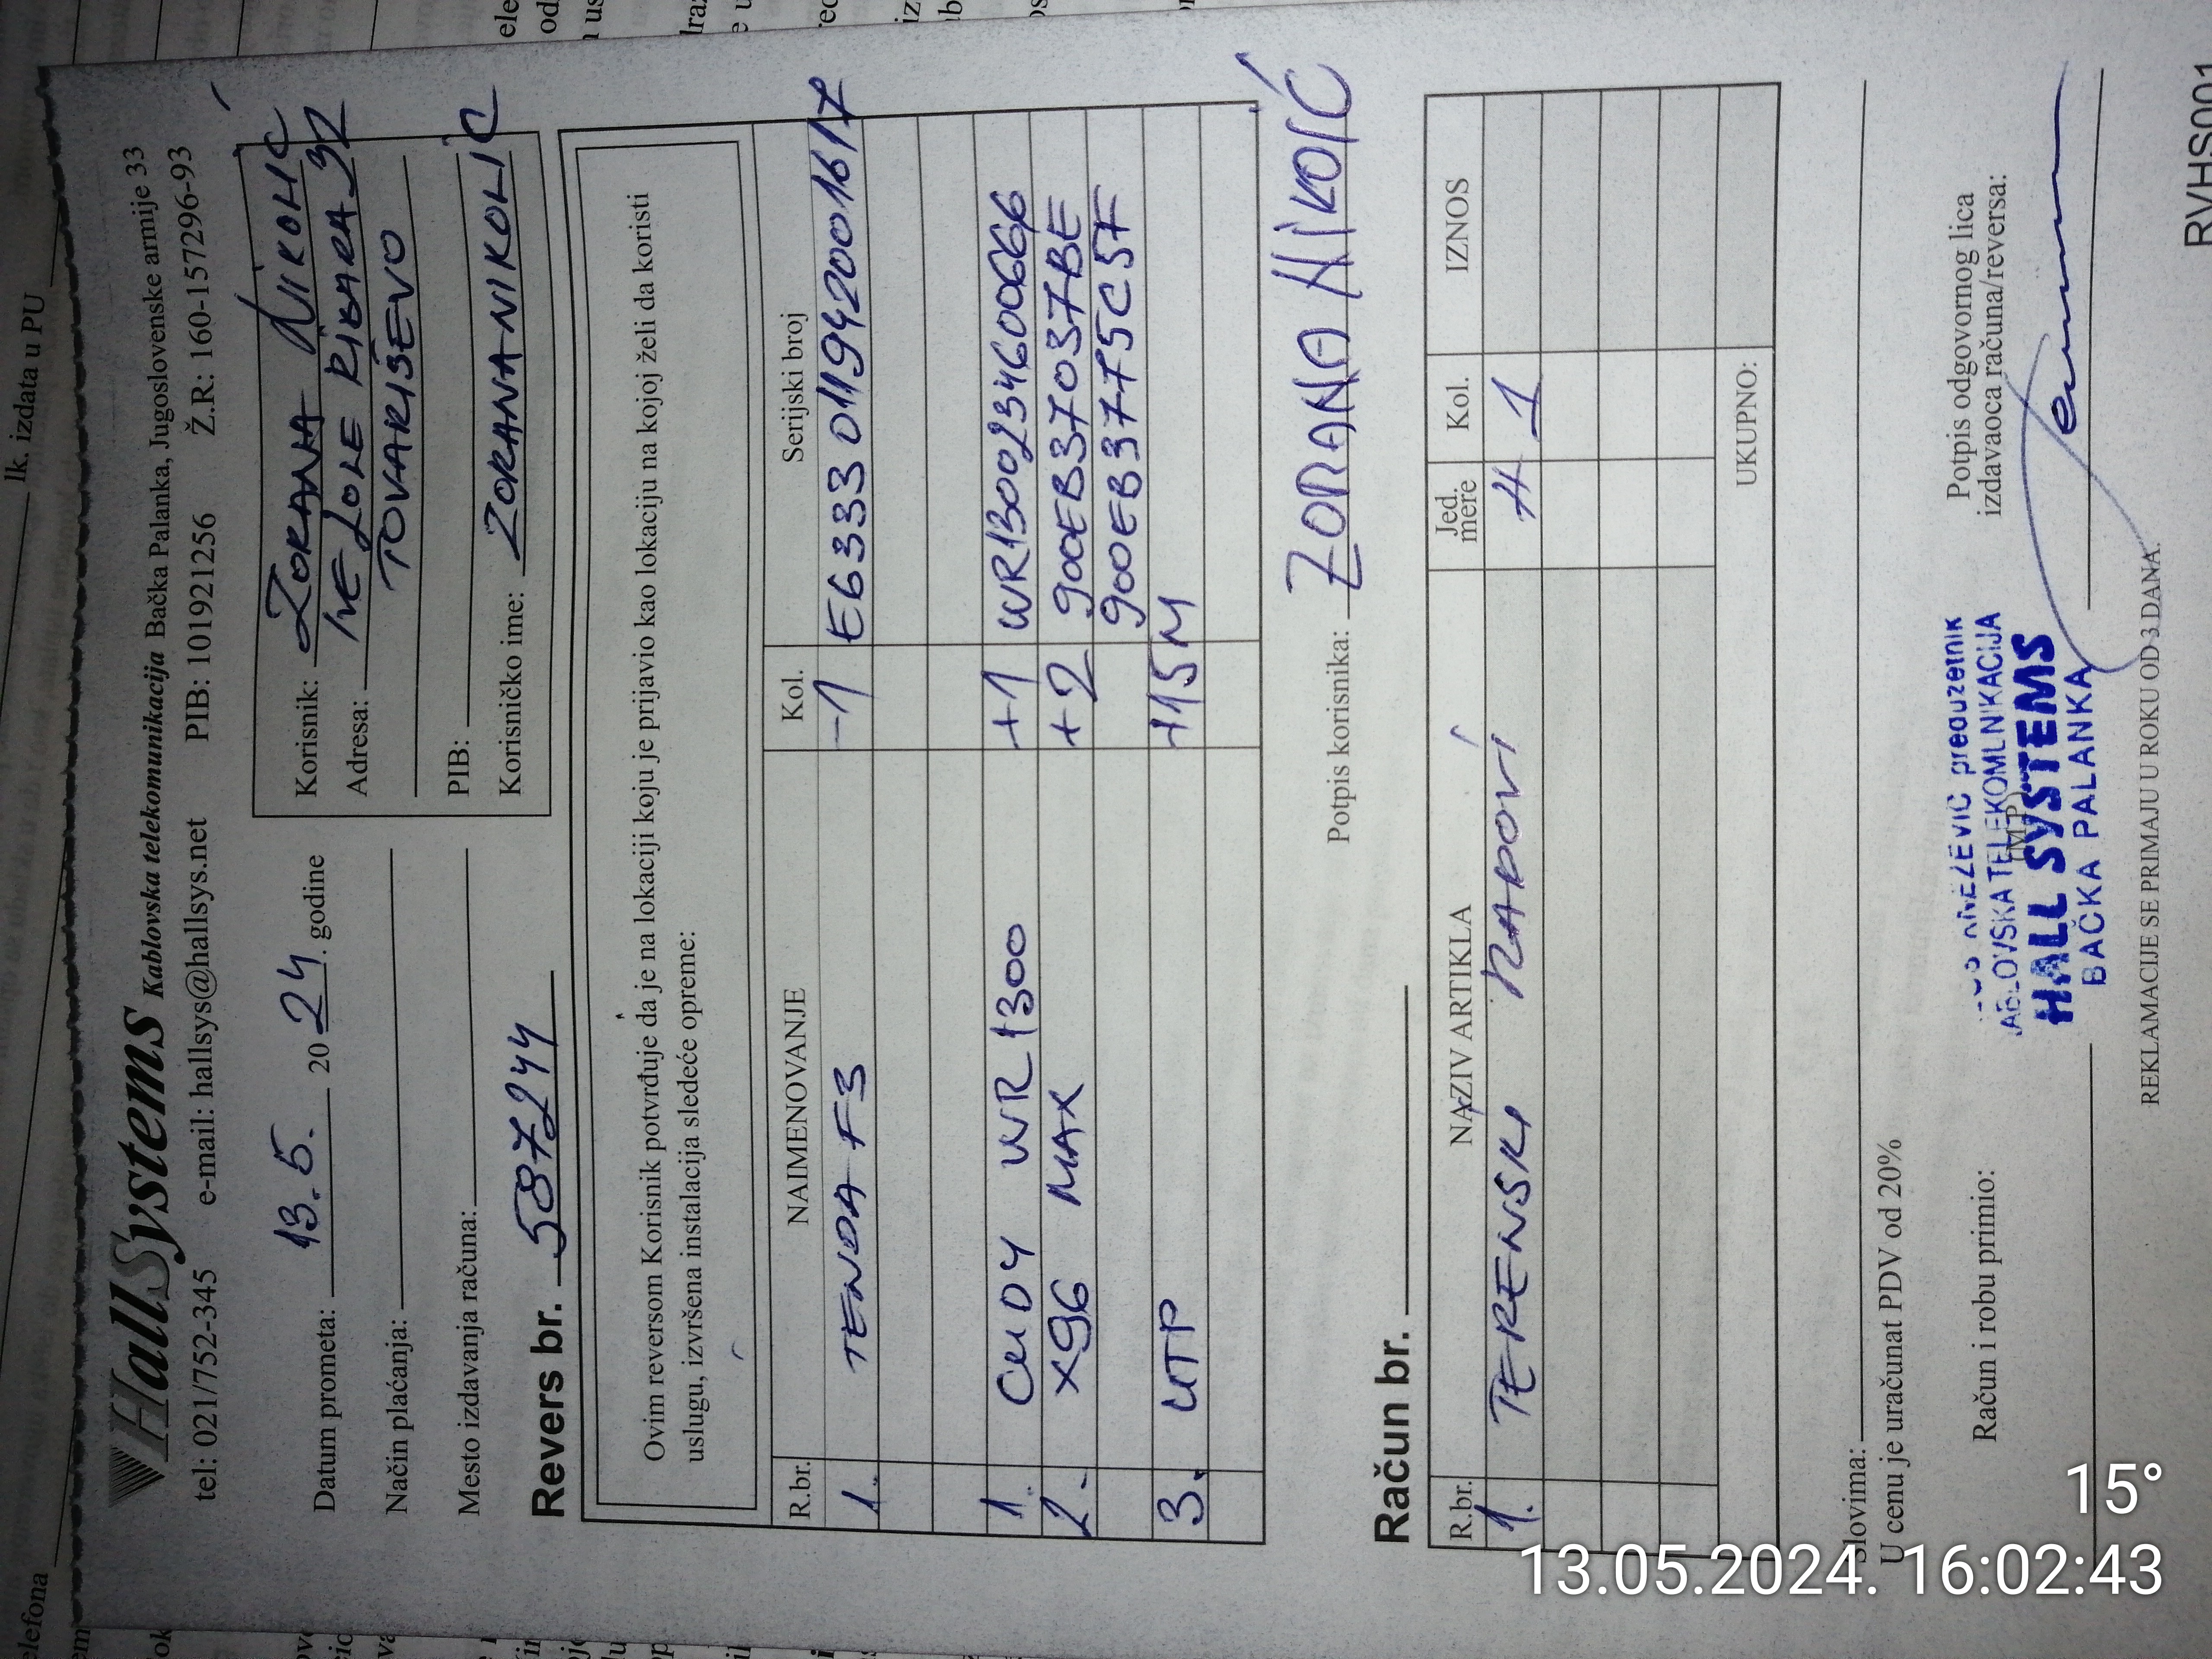 lk. izdata u PU
HallSystems Kablovska telekomunikacija Bačka Palanka, Jugoslovenske armije 33
tel: 021/752-345 e-mail: hallsys@hallsys.net PIB: 101921256 Ž.R: 160-157296-93
Datum prometa: 13.5. 2024. godine
Način plaćanja:
Mesto izdavanja računa:
Korisnik: ZORANA NIKOLIĆ
Adresa: IVE LOLE RIBARA 32
TOVARIŠEVO
PIB:
Korisničko ime: ZORANANIKOLIC
Revers br. 587244
Ovim reversom Korisnik potvrđuje da je na lokaciji koju je prijavio kao lokaciju na kojoj želi da koristi
uslugu, izvršena instalacija sledeće opreme:
R.br. NAIMENOVANJE Kol. Serijski broj
1. TENDA F3 -1 E6333011942001617
1. CUDY WR1300 +1 WR1300234600666
2. X96 MAX +2 900EB37037BE
900EB3775C5F
3. UTP +15M
Potpis korisnika: ZORANA NIKOIĆ
Račun br.
R.br. NAZIV ARTIKLA Jed. mere Kol. IZNOS
1. TERENSKI RADOVI H 1
UKUPNO:
Slovima:
U cenu je uračunat PDV od 20%
Račun i robu primio:
Potpis odgovornog lica
izdavaoca računa/reversa:
(M.P.)
preduzetnik
KABLOVSKA TELEKOMUNIKACIJA
HALL SYSTEMS
BAČKA PALANKA
REKLAMACIJE SE PRIMAJU U ROKU OD 3 DANA.
RVHS001
15°
13.05.2024. 16:02:43